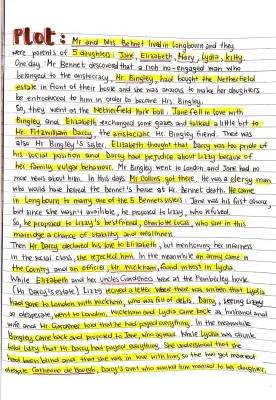 PLOT: Mr and Mrs Bennet lived in Longbourn and they
were parents of 5 daughters: Jane, Elizabeth, Mary, Lydia, Kitty.
One day Mr Bennet discovered that a rich no-engaged man who
belonged to the aristocracy, Mr. Bingley, had bought the Netherfield
estate in front of their house and she was anxious to make her daughters
be introduced to him in order to become Mrs Bingley.
So, they went at the Netherfield Park ball: Jane fell in love with
Bingley and Elizabeth exchanged some gazes and talked a little bit to
Mr. Fitzwilliam Darcy, the aristocratic Mr. Bingley friend. There was
also Mr Bingley's sister. Elizabeth thought that Darcy was too pride of
his social position and Darcy had prejudice about Lizzy because of
her family vulgar behaviour. Mr Bingley went to London and Jane had no
more news about him. In this days Mr Collins got there. He was a clergy man
who would have heired the Bennet's house at Mr Bennet death. He came
in Longbourn to marry one of the 5 Bennets sisters: Jane was his first choice,
but since she wasn't available, he proposed to Lizzy, who refused.
So, he proposed to Lizzy's bestfriend, Charlotte Lucas, who saw in this
marriage a chance of stability and wealthness.
Then Mr Darcy declared his love to Elizabeth, but mentioning her inferiority
in the social class, she rejected him. In the meanwhile an army came in
the country and an officer, Mr Wickham, found interest in Lydia.
While Elizabeth and her uncles Gardeners were at the Pemberley house
(Mr Darcy's estate) Lizzy received a letter where there was written that Lydia
had gone to London with Wickham, who was full of debts. Darcy, seeing Lizzy
so desesperate, went to London. Wickham and Lydia came back as husband and
wife and Mr Gardener told that he had payed everything. In the meanwhile
Bingley came back and proposed to Jane, who agreed. While Lydia was drunk
told Lizzy that Mr Darcy had payed everything. She understood that she
had been blind and that she was in love with him, so the two got married
despite Catherine de Bourgh, Darcy's aunt who wanted him married to her daughter.